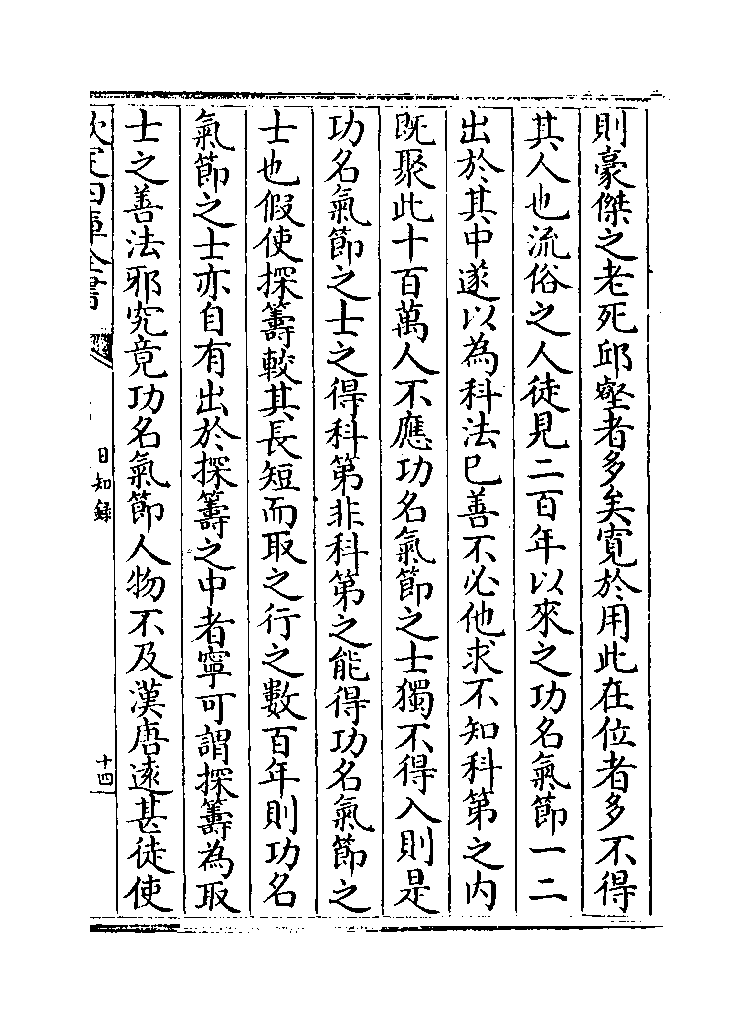 則豪傑之老死邱壑者多矣寛於用此在位者多不得
其人也流俗之人徒見二百年以來之功名氣節一二
出於其中遂以為科法已善不必他求不知科第之内
既聚此十百萬人不應功名氣節之士獨不得入則是
功名氣節之士之得科第非科第之能得功名氣節之
士也假使探籌較其長短而取之行之數百年則功名
氣節之士亦自有出於探籌之中者寧可謂探籌為取
士之善法邪究竟功名氣節人物不及漢唐逺甚徒使
欽定四庫全書
日知錄
十四